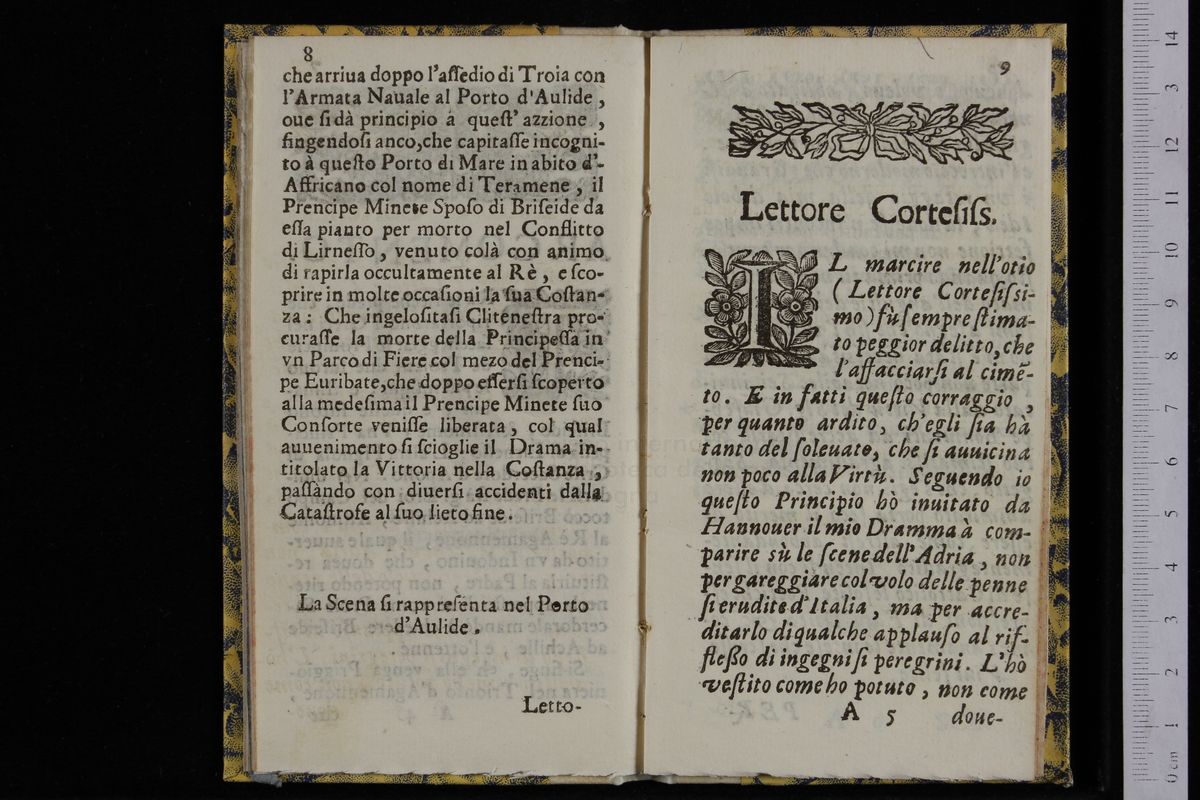 8
che arriua doppo l'aſſedio di Troia con
l'Armata Nauale al Porto d'Aulide ,
oue ſi dà principio à queſt' azzione ,
fingendoſi anco,che capitaſſe incogni-
to à queſto Porto di Mare in abito d'-
Affricano col nome di Teramene , il
Prencipe Minete Spoſo di Briſeide da
eſſa pianto per morto nel Conflitto
di Lirneſſo , venuto colà con animo
di rapirla occultamente al Rè , e ſco-
prire in molte occaſioni la ſua Coſtan-
za : Che ingeloſitaſi Clitèneſtra pro-
curaſſe la morte della Principeſſa in
vn Parco di Fiere col mezo del Prenci-
pe Euribate,che doppo eſſerſi ſcoperto
alla medeſima il Prencipe Minete ſuo
Conſorte veniſſe liberata , col qual
auuenimento ſi ſcioglie il Drama in-
titolato la Vittoria nella Coſtanza ,
paſſando con diuerſi accidenti dalla
Cataſtrofe al ſuo lieto fine .
La Scena ſi rappreſenta nel Porto
d'Aulide .
Letto-
9
Lettore Corteſiſs.
IL marcire nell'otio
( Lettore Corteſiſsi-
mo ) fù ſempre ſtima-
to peggior delitto, che
l'affacciarſi al cimē-
to . E in fatti queſto corraggio ,
per quanto ardito, ch'egli ſia hà
tanto del ſoleuato, che ſi auuicina
non poco alla Virtù. Seguendo io
queſto Principio hò inuitato da
Hannouer il mio Dramma à com-
parire sù le ſcene dell'Adria , non
per gareggiare col volo delle penne
ſi erudite d'Italia , ma per accre-
ditarlo di qualche applauſo al rif-
fleſſo di ingegni ſi peregrini. L'hò
veſtito come ho potuto , non come
A 5 doue-